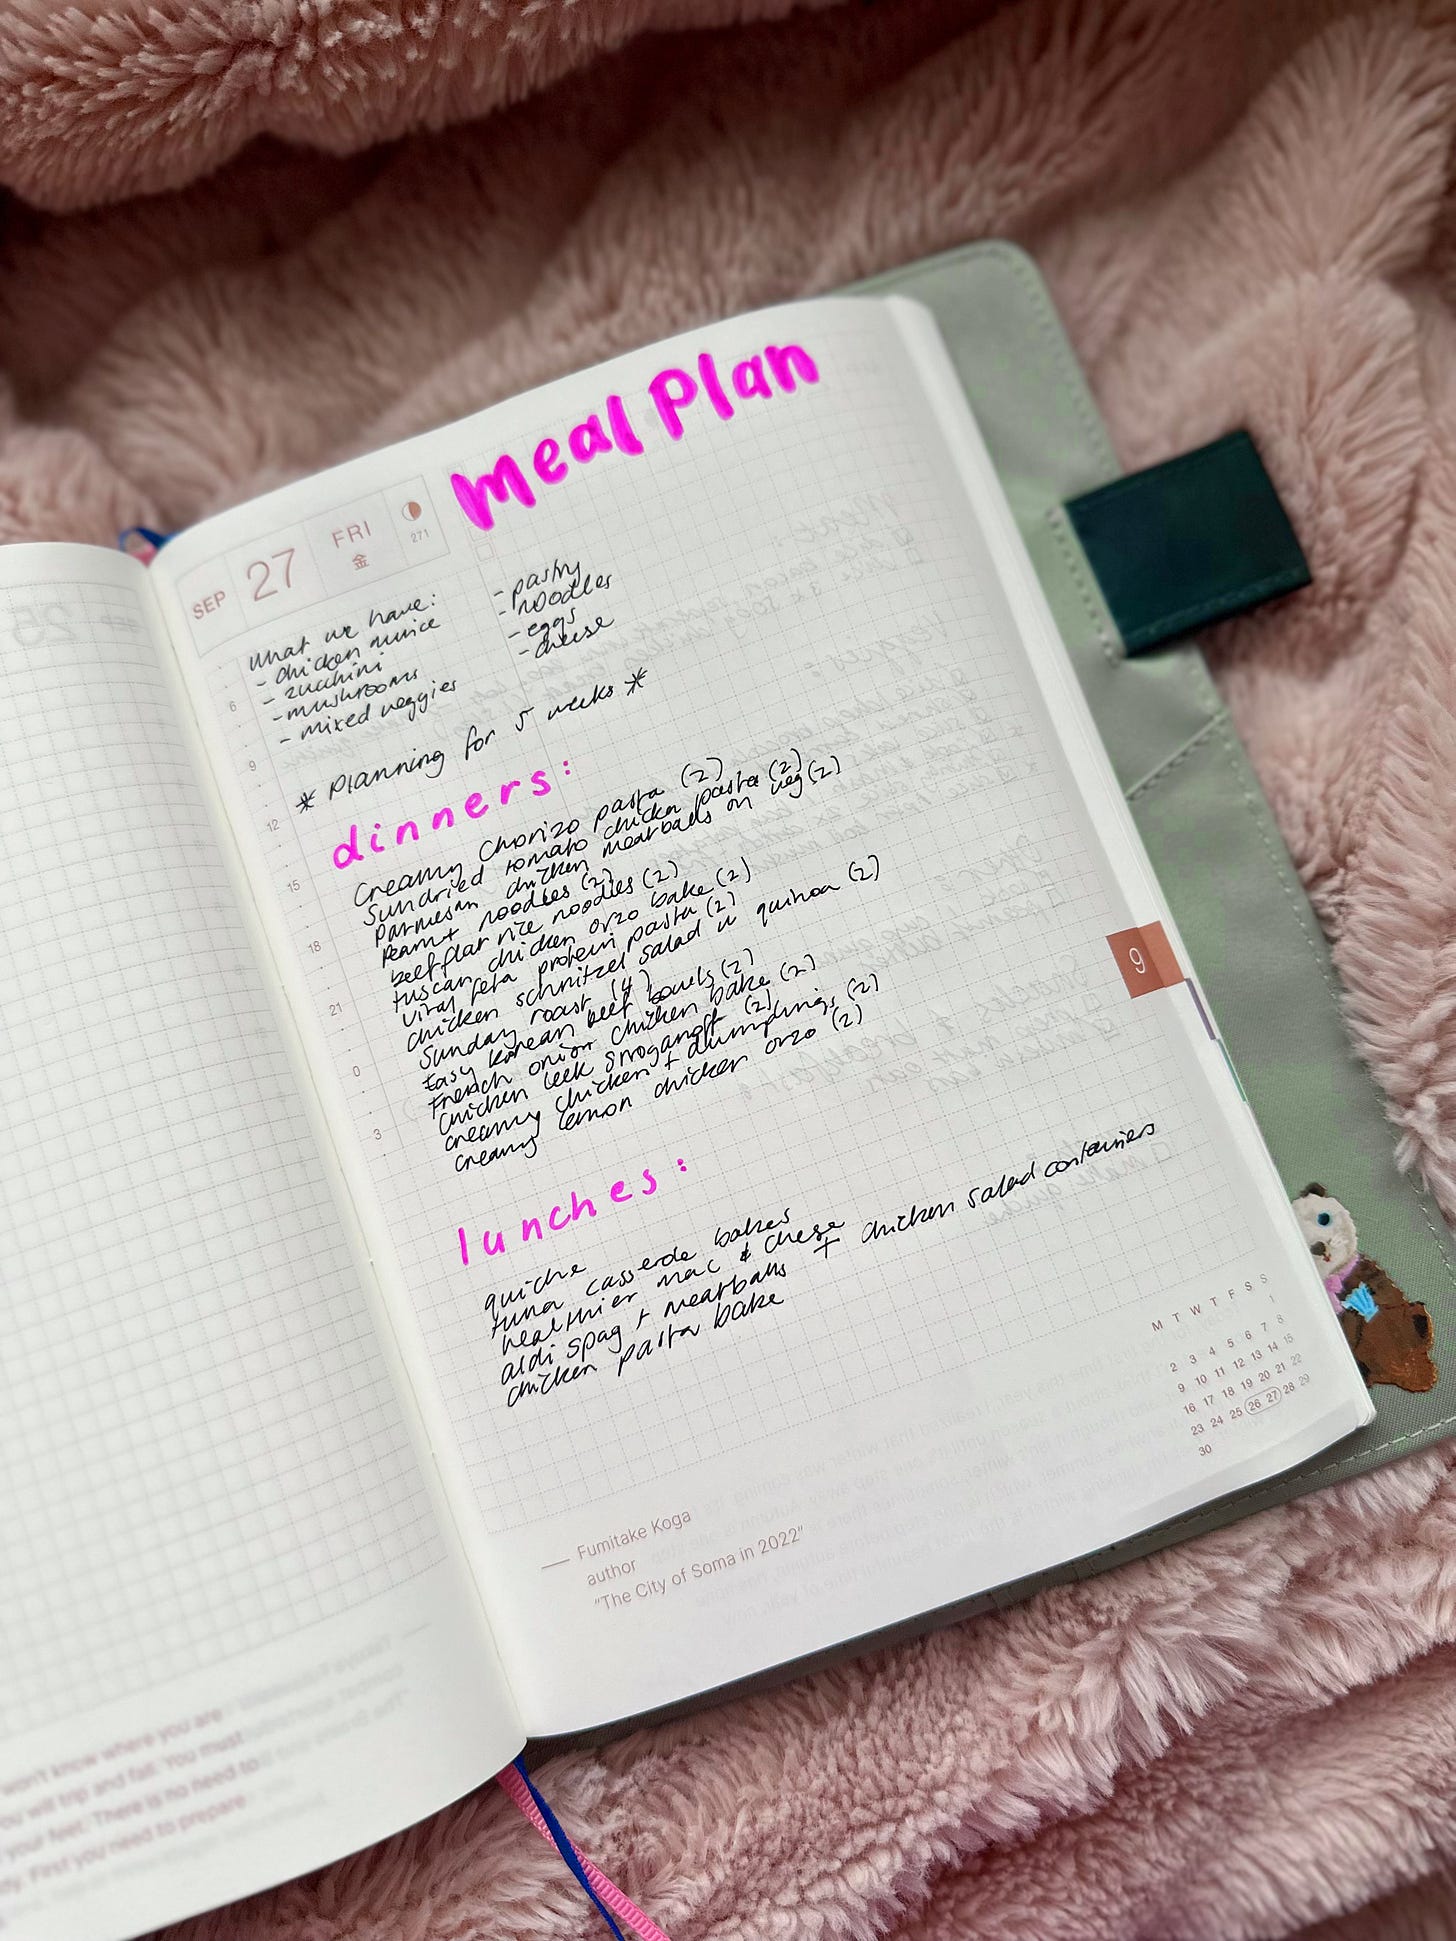 meal Plan
SEP 27 FRI
金 271
What we have:
- chicken mince
- zucchini
- mushrooms
- mixed veggies
- pastry
- noodles
- eggs
- cheese
* Planning for 5 weeks *
dinners:
Creamy Chorizo pasta (2)
Sundried tomato chicken pasta (2)
Parmesan chicken meatballs on veg (2)
Peanut noodles (2)
beef flat rice noodles (2)
tuscan chicken orzo bake (2)
Viral feta protein pasta (2)
Chicken schnitzel salad w quinoa (2)
Sunday roast (4)
Easy korean beef bowls (2)
French onion chicken bake (2)
Chicken leek stroganoff (2)
creamy chicken + dumplings (2)
creamy lemon chicken orzo (2)
lunches:
quiche
tuna casserole bakes
healthier mac & cheese
aldi spag + meatballs + chicken salad containers
chicken pasta bake
6
9
12
15
18
21
0
3
9
M T W T F S S
1
2 3 4 5 6 7 8
9 10 11 12 13 14 15
16 17 18 19 20 21 22
23 24 25 26 27 28 29
30
— Fumitake Koga
author
"The City of Soma in 2022"
won't know where you are
you will trip and fall. You must
your feet. There is no need to
First you need to prepare